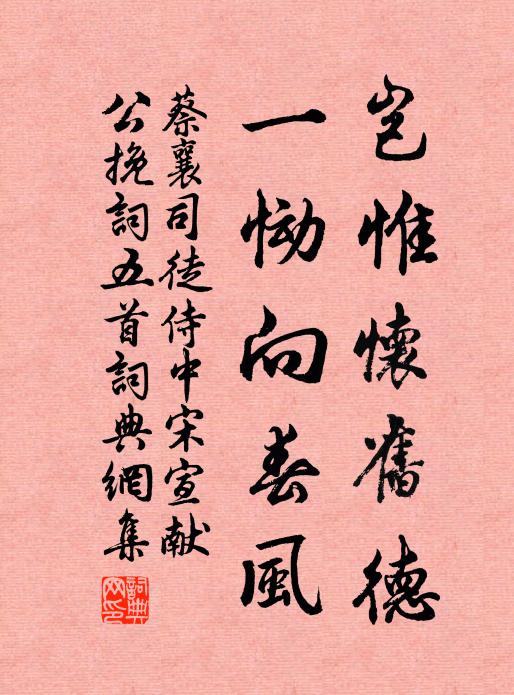 豈惟懷舊德
一慟向春風
蔡襄司徒侍中宋宣献
公挽詞五首詞典網集
詞典
网印